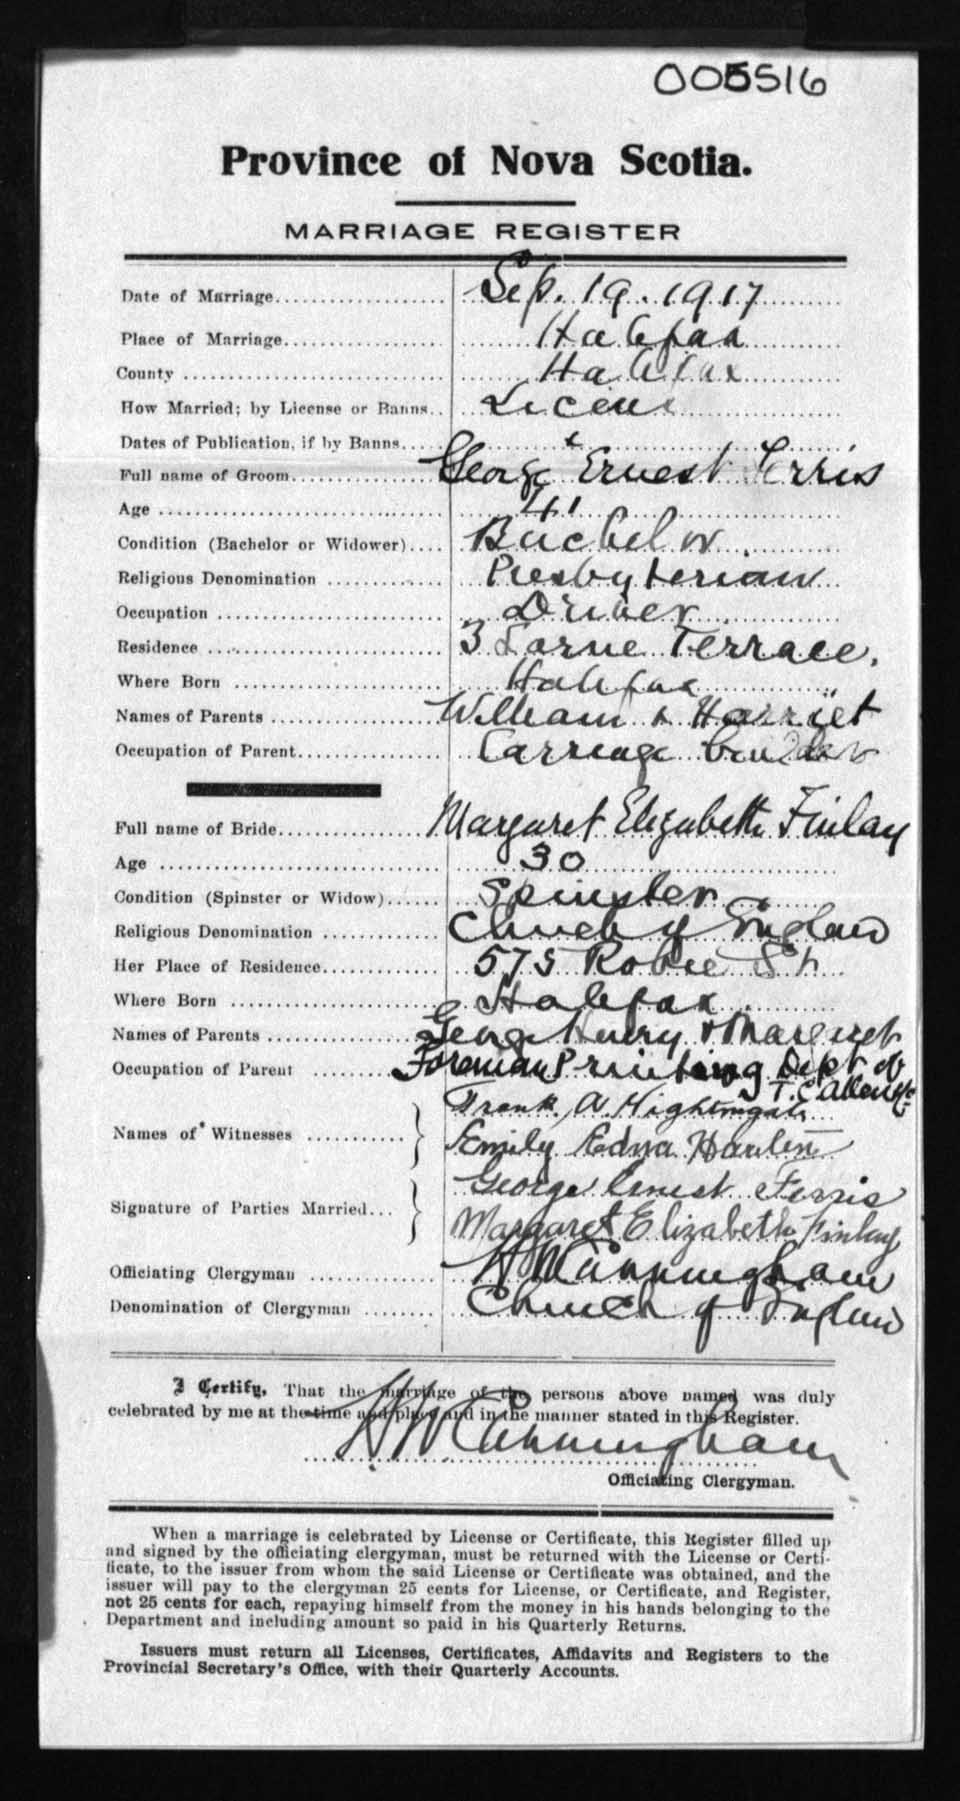 005516
Province of Nova Scotia.
MARRIAGE REGISTER
Date of Marriage Sep. 19. 1917
Place of Marriage Halifax
County Halifax
How Married; by License or Banns License
Dates of Publication, if by Banns
Full name of Groom George Ernest Ferris
Age 41
Condition (Bachelor or Widower) Bachelor
Religious Denomination Presbyterian
Occupation Driver
Residence 3 Lorne Terrace.
Where Born Halifax
Names of Parents William & Harriet
Occupation of Parent Carriage builder
Full name of Bride Margaret Elizabeth Finlay
Age 30
Condition (Spinster or Widow) Spinster
Religious Denomination Church of England
Her Place of Residence 575 Robie St.
Where Born Halifax
Names of Parents George Henry & Margaret
Occupation of Parent Foreman Printing Dept of
T. C. Allen & Co
Names of Witnesses Frank A Nightingale
Emily Edna
Signature of Parties Married George Ernest Ferris
Margaret Elizabeth Finlay
Officiating Clergyman H W Cunningham
Denomination of Clergyman Church of England
I Certify, That the marriage of the persons above named was duly
celebrated by me at the time and place and in the manner stated in this Register.
H W Cunningham
Officiating Clergyman.
When a marriage is celebrated by License or Certificate, this Register filled up
and signed by the officiating clergyman, must be returned with the License or Certi-
ficate, to the issuer from whom the said License or Certificate was obtained, and the
issuer will pay to the clergyman 25 cents for License, or Certificate, and Register,
not 25 cents for each, repaying himself from the money in his hands belonging to the
Department and including amount so paid in his Quarterly Returns.
Issuers must return all Licenses, Certificates, Affidavits and Registers to the
Provincial Secretary's Office, with their Quarterly Accounts.